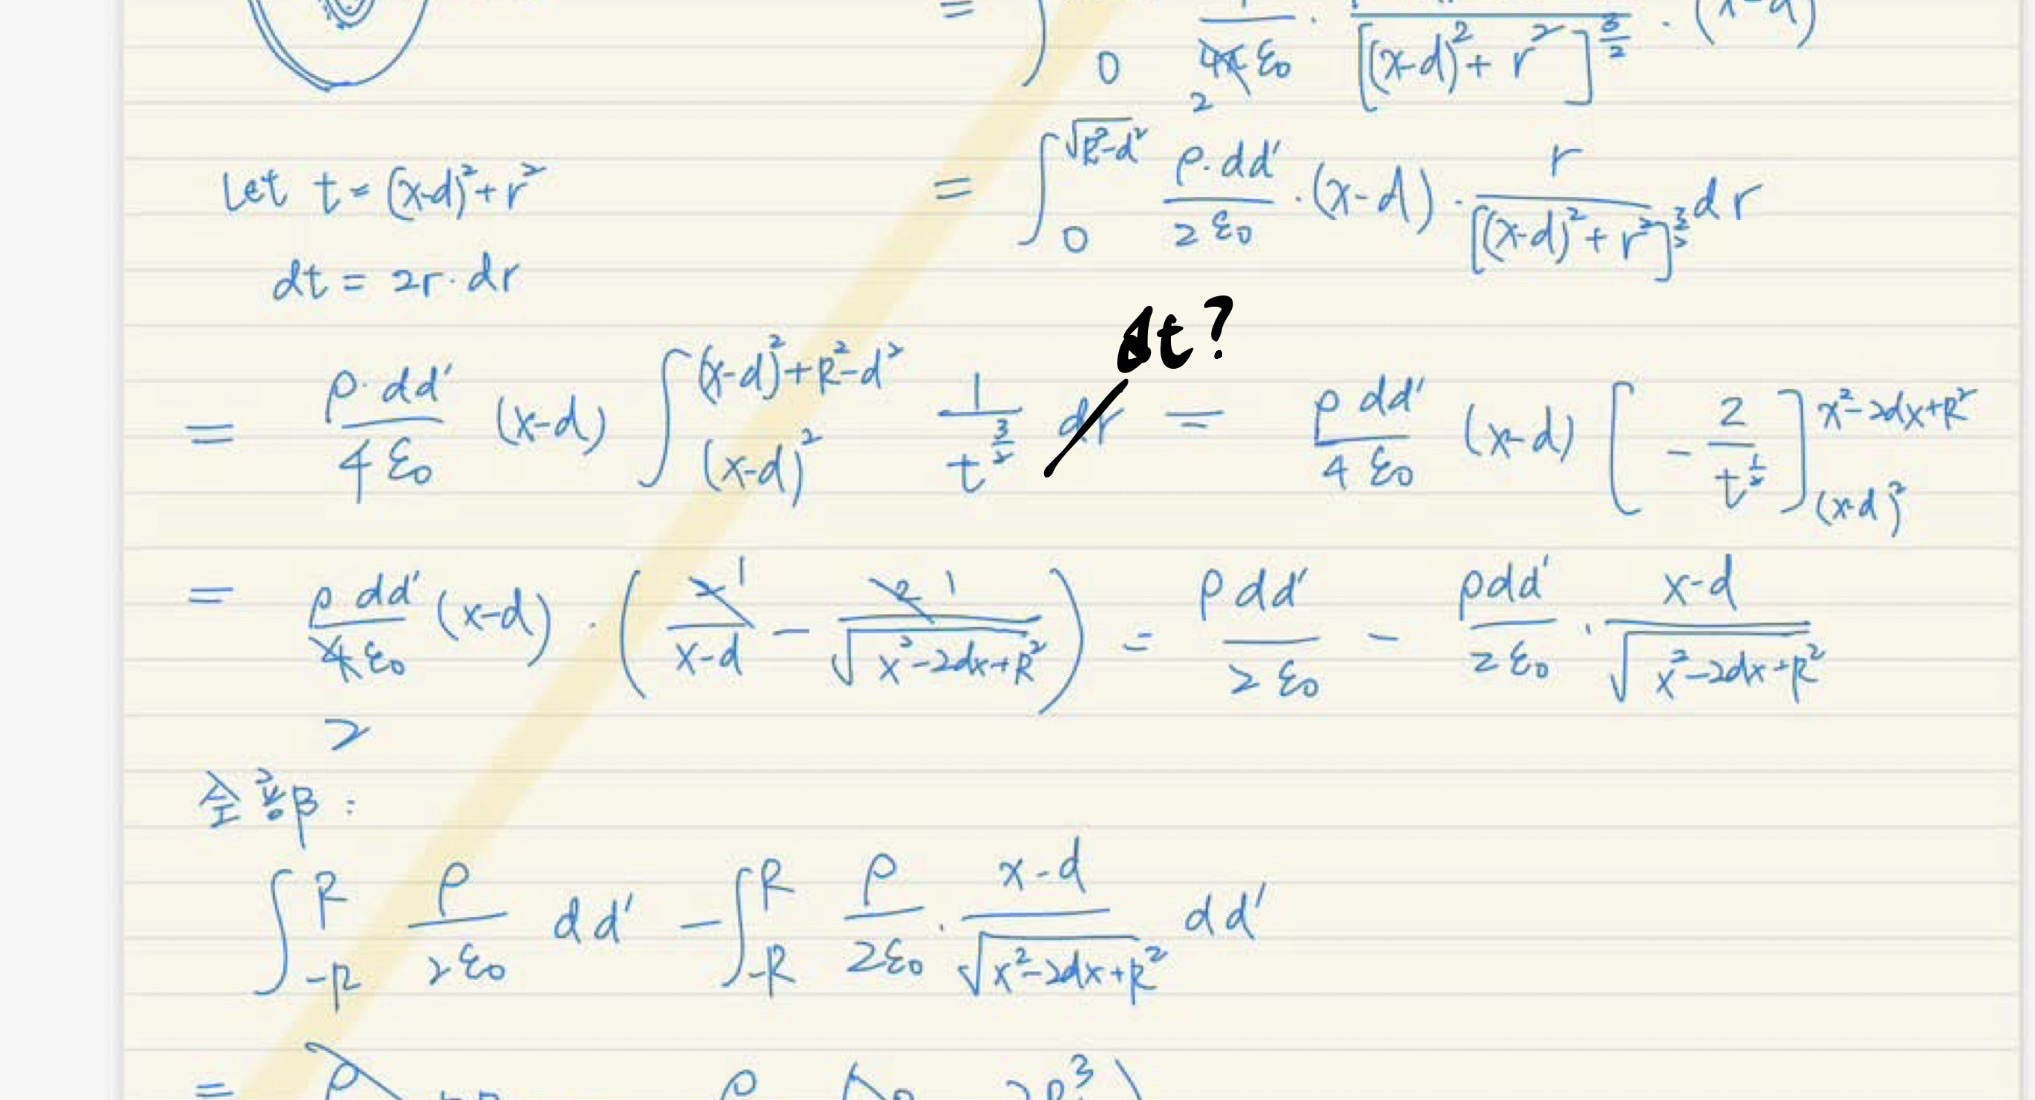 = ∫₀ 1/(4π ε₀) · /[(x-d)²+r²]^(3/2) · (x-d)
2
Let t = (x-d)²+r²
= ∫₀^(√(R²-d²)) ρ·dd'/(2ε₀) · (x-d) · r/[(x-d)²+r²]^(3/2) dr
dt = 2r·dr
dt?
= ρ·dd'/(4ε₀) (x-d) ∫_((x-d)²)^((x-d)²+R²-d²) 1/t^(3/2) dr = ρ dd'/(4ε₀) (x-d) [-2/t^(1/2)]_((x-d)²)^(x²-2dx+R²)
= ρ dd'/(4ε₀) (x-d) · (2 1/(x-d) - 2 1/√(x²-2dx+R²)) = ρdd'/(2ε₀) - ρdd'/(2ε₀) · (x-d)/√(x²-2dx+R²)
2
全部:
∫_(-R)^R ρ/(2ε₀) dd' - ∫_(-R)^R ρ/(2ε₀) · (x-d)/√(x²-2dx+R²) dd'
= ρ ρ 2R³)